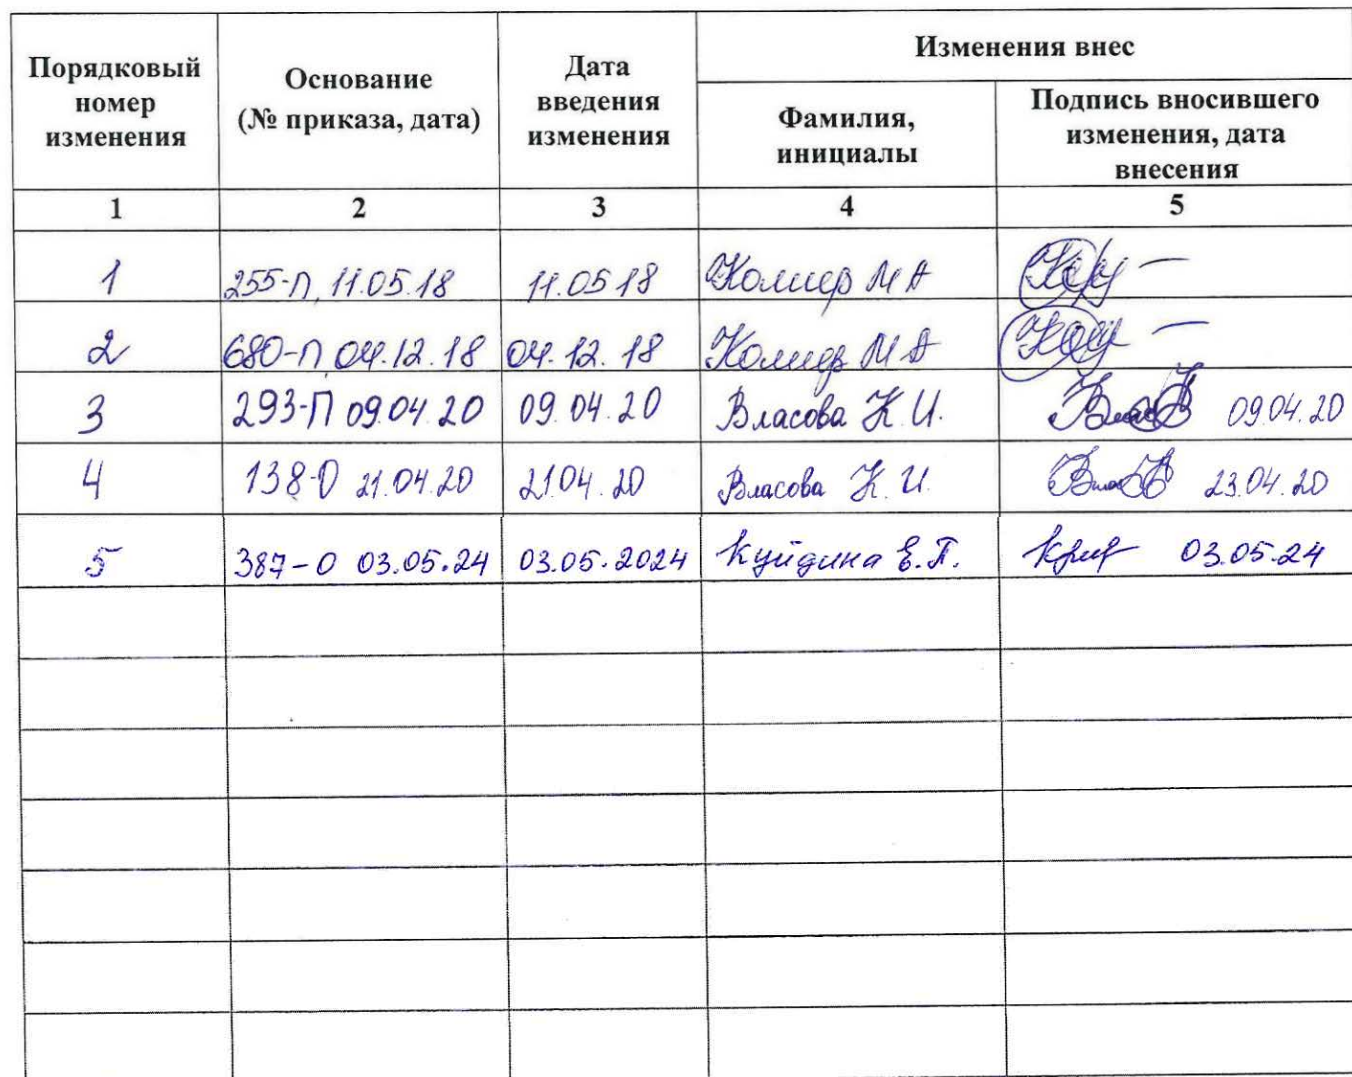 Порядковый номер изменения
Основание (№ приказа, дата)
Дата введения изменения
Изменения внес
Фамилия, инициалы
Подпись вносившего изменения, дата внесения
1 2 3 4 5
1 255-П, 11.05.18 11.05 18 М А
2 680-П, 04.12.18 04.12.18 М А
3 293-П 09.04 20 09.04.20 Власова К. И. 09.04.20
4 138-О 21.04.20 21.04.20 Власова К. И. 23.04.20
5 387-О 03.05.24 03.05.2024 Куйдина Е.П. 03.05.24